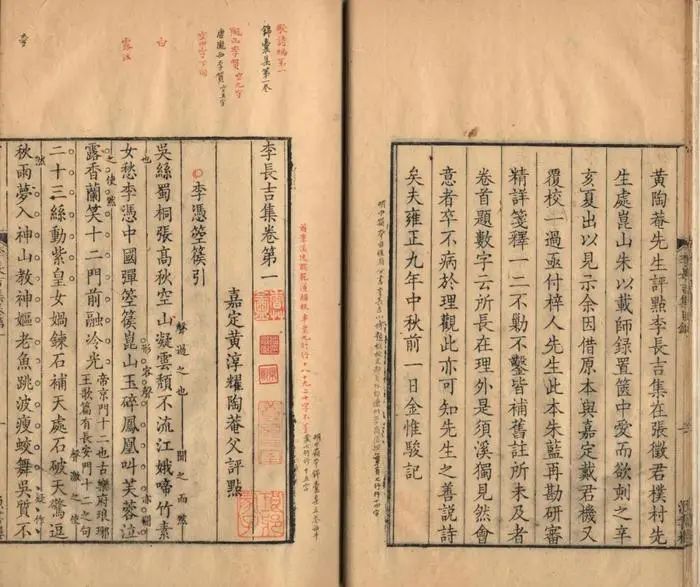 黄陶菴先生評點李長吉集在張徵君樸村先
生處崑山朱以載師錄置篋中愛而欲刻之辛
亥夏出以見示余因借原本與嘉定戴君機又
覆校一過亟付梓人先生此本朱藍再勘研審
精詳箋釋一二不勦不鑿皆補舊註所未及者
卷首題數字云所長在理外是須溪獨見然會
意者卒不病於理觀此亦可知先生之善說詩
矣夫雍正九年中秋前一日金惟駿記
歌詩編第一
錦囊集第一卷
隴西李賀
李長吉集卷第一
嘉定黃淳耀陶菴父評點
李憑箜篌引
吳絲蜀桐張髙秋空山凝雲頹不流江娥啼竹素
女愁李憑中國彈箜篌崑山玉碎鳳凰叫芙蓉泣
露香蘭笑十二門前融冷光
帝京門十二也古樂府琅琊
王歌篇有長安門十二之句
二十三絲動紫皇女媧鍊石補天處石破天驚逗
秋雨夢入神山教神嫗老魚跳波瘦蛟舞吳質不